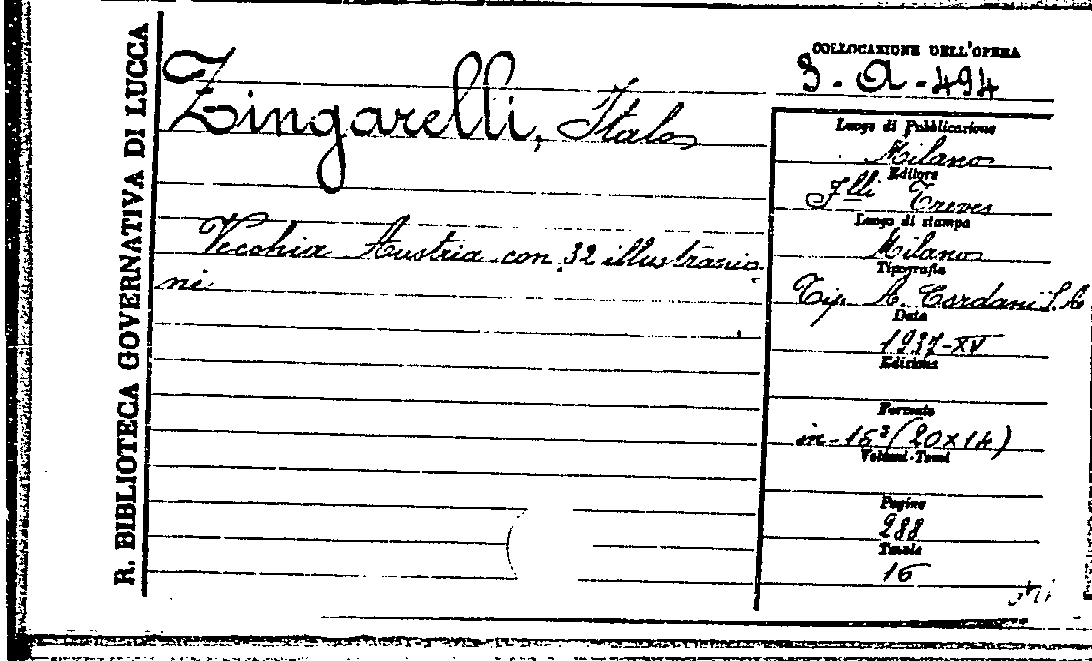 R. BIBLIOTECA GOVERNATIVA DI LUCCA
Zingarelli, Italo
Vecchia Austria con 32 illustrazio-
ni
COLLOCAZIONE DELL'OPERA
3-a-494
Luogo di Pubblicazione
Milano
Editore
Flli Treves
Luogo di stampa
Milano
Tipografia
Tip. A. Cordani S.A
Data
1937-XV
Edizione
Formato
in-16º (20x14)
Volumi-Tomi
Pagine
288
Tavole
16